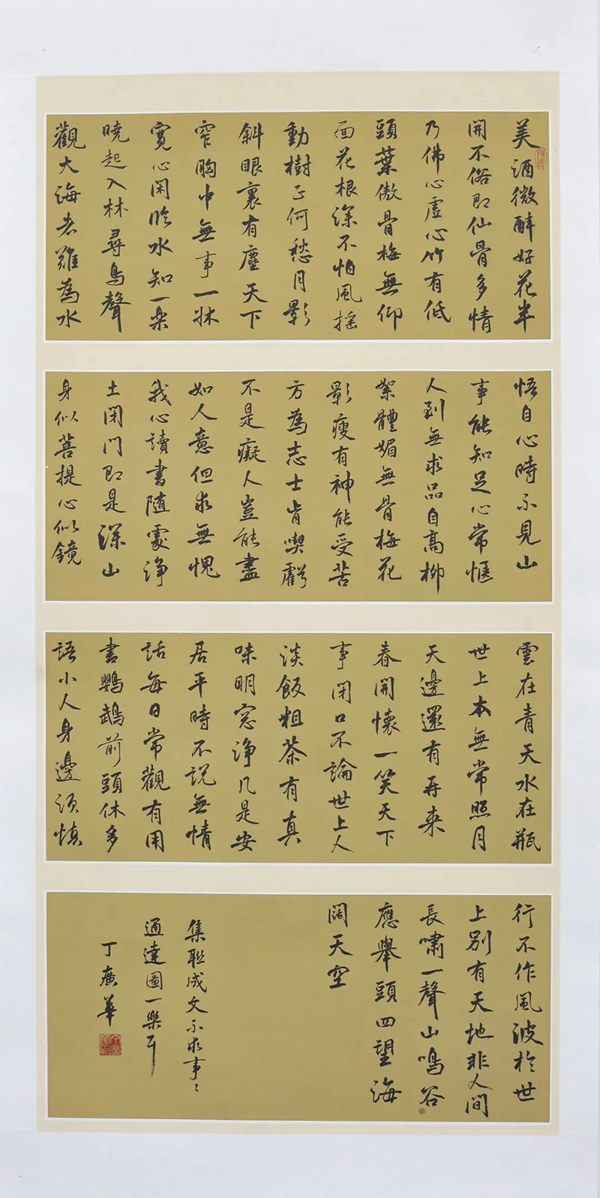 美酒微醉好花半
開不俗即仙骨多情
乃佛心虛心竹有低
頭葉傲骨梅無仰
面花根深不怕風搖
動樹正何愁月影
斜眼裏有塵天下
窄胸中無事一牀
寬心閑臨水知一樂
曉起入林尋鳥聲
觀大海者難為水
悟自心時不見山
事能知足心常愜
人到無求品自高柳
絮體媚無骨梅花
影瘦有神能受苦
方為志士肯喫虧
不是癡人豈能盡
如人意但求無愧
我心讀書隨處淨
土閉門即是深山
身似菩提心似鏡
雲在青天水在瓶
世上本無常照月
天邊還有再來
春開懷一笑天下
事閉口不論世上人
淡飯粗茶有真
味明窓淨几是安
居平時不說無情
話每日常觀有用
書鸚鵡前頭休多
語小人身邊須慎
行不作風波於世
上別有天地非人間
長嘯一聲山鳴谷
應舉頭四望海
闊天空
集聯成文不求事事
通達圖一樂耳
丁廣華